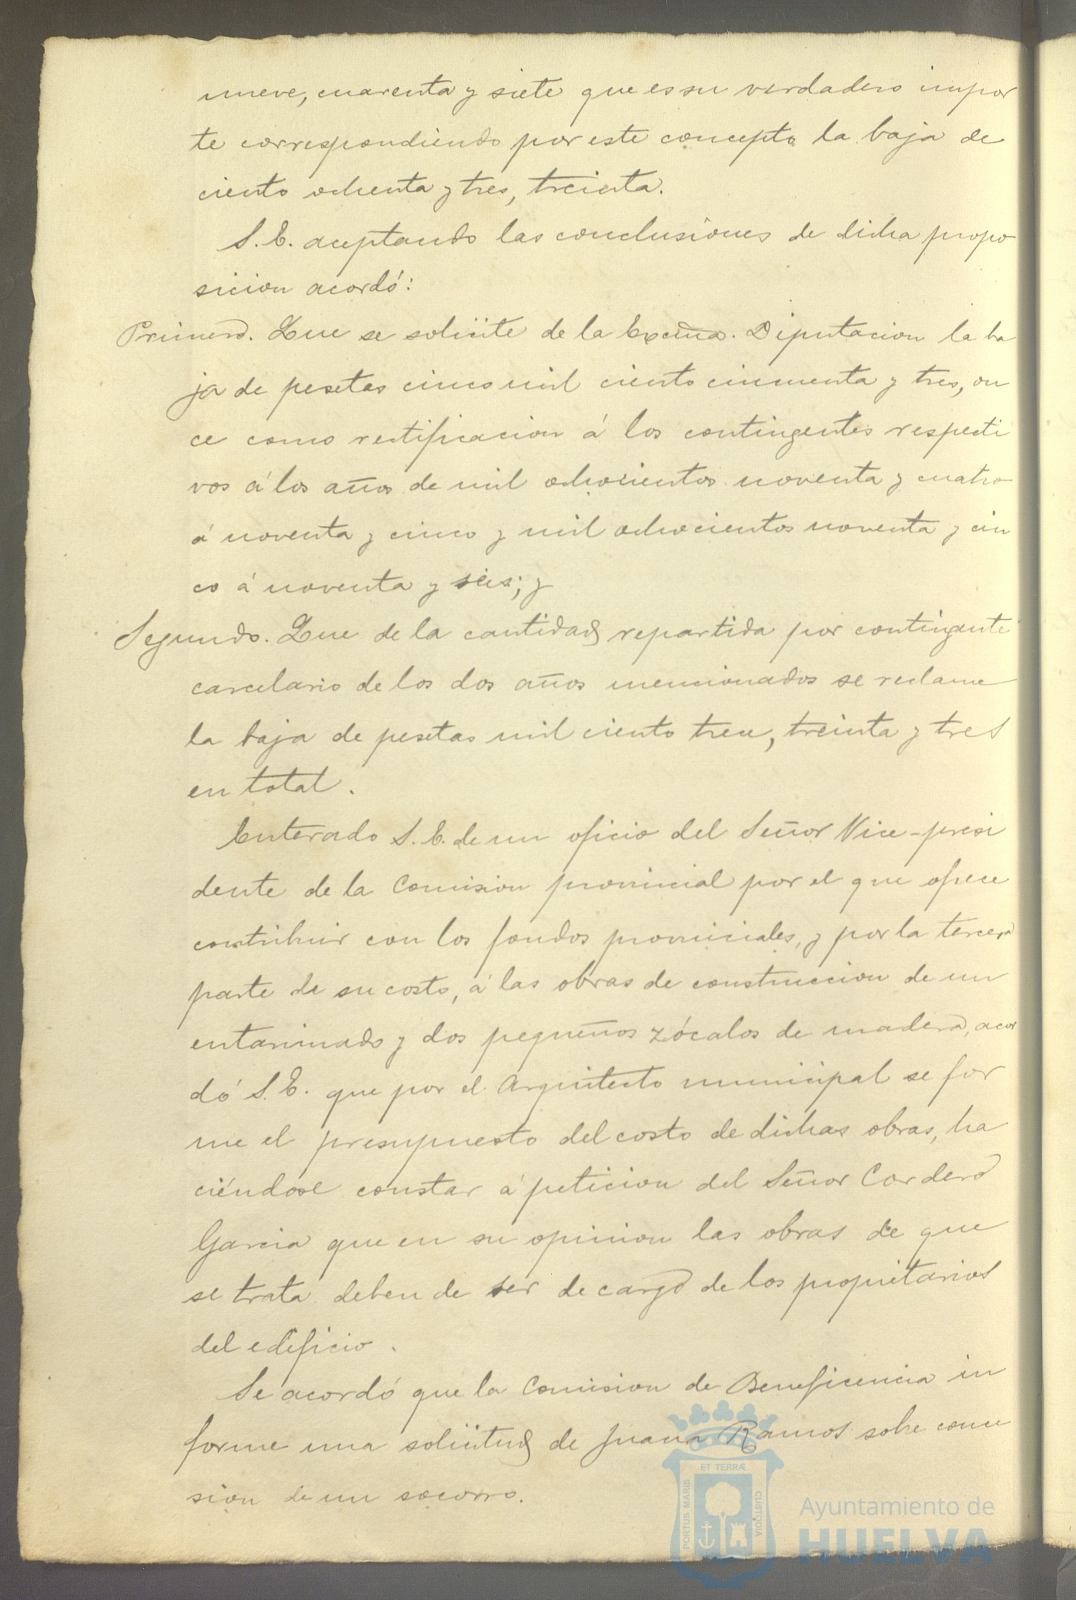 nueve, cuarenta y siete que es su verdadero impor
te correspondiendo por este concepto la baja de
ciento ochenta y tres, treinta.
S.E. aceptando las conclusiones de dicha propo
sicion acordó:
Primero. Que se solicite de la Excma. Diputacion la ba
ja de pesetas cinco mil ciento cincuenta y tres, on
ce como rectificacion á los contingentes respecti
vos á los años de mil ochocientos noventa y cuatro
á noventa y cinco y mil ochocientos noventa y cin
co á noventa y seis; y
Segundo. Que de la cantidad repartida por contingente
carcelario de los dos años mencionados se reclame
la baja de pesetas mil ciento trece, treinta y tres
en total.
Enterado S.E. de un oficio del Señor Vice-presi
dente de la Comision provincial por el que ofrece
contribuir con los fondos provinciales, y por la tercera
parte de su costo, á las obras de construccion de un
entarimado y dos pequeños zócalos de madera, acor
dó S.E. que por el Arquitecto municipal se for
me el presupuesto del costo de dichas obras, ha
ciéndose constar á peticion del Señor Cordero
Garcia que en su opinion las obras de que
se trata deben de ser de cargo de los propietarios
del edificio.
Se acordó que la Comision de Beneficencia in
forme una solicitud de Juana Ramos sobre conce
sion de un socorro.
PORTUS MARIS ET TERRÆ CUSTODIA
Ayuntamiento de
HUELVA